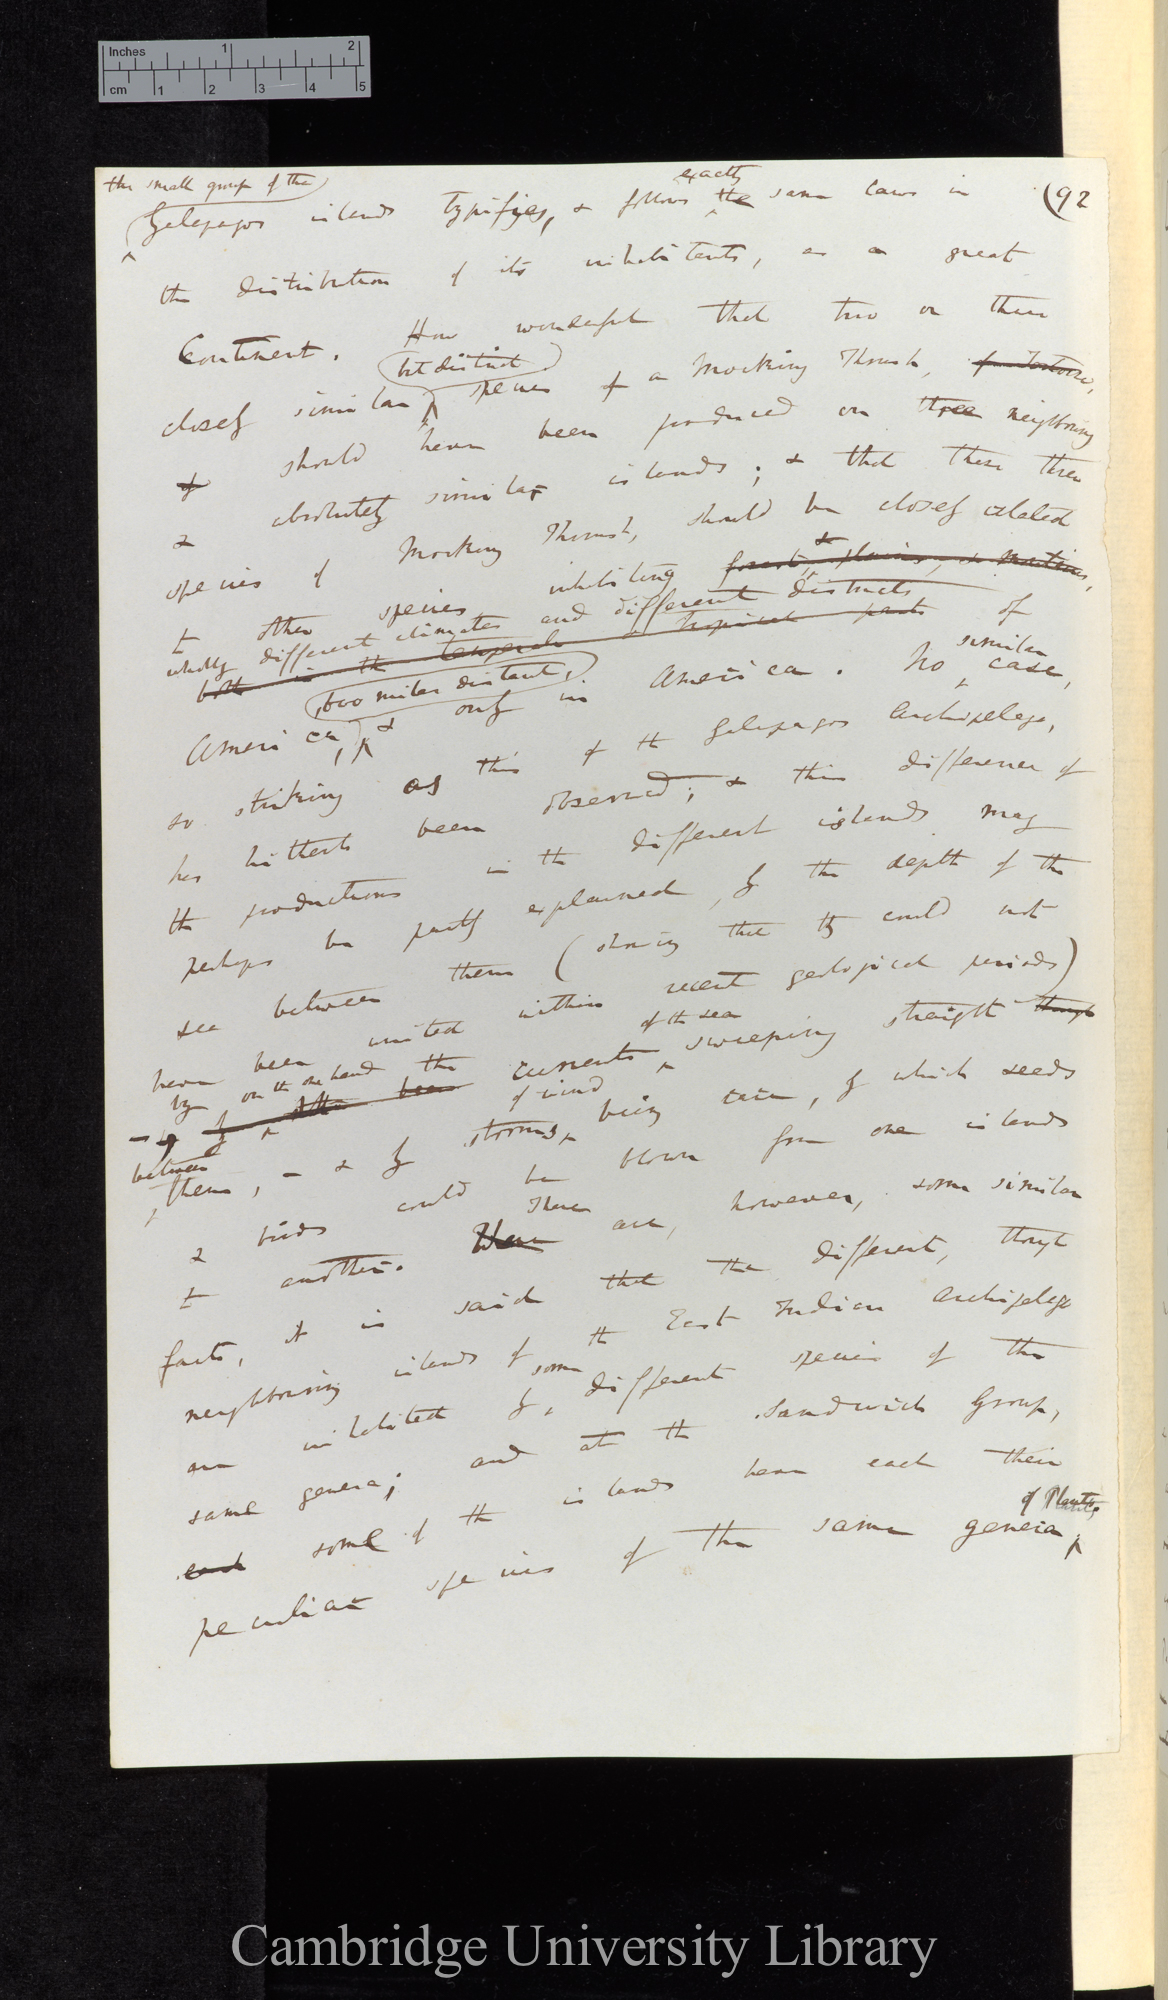 Inches 1 2
cm 1 2 3 4 5
the small group of the exactly
Galapagos islands typifies, & follows the same laws in (92
the distribution of its inhabitants, as a great
Continent. How wonderful that two or three
but distinct
closely similar species of a Mocking Thrush, of a Tortoise,
& should have been produced on three neighbouring
& absolutely similar islands; & that these three
species of Mocking Thrush, should be closely related
to other species inhabiting forests, & plains, &
wholly different climates and different districts
both in the temperate & tropical parts of
two miles distant, similar
America, & only in America. No case,
so striking as this of the Galapagos Archipelago,
has hitherto been observed; & this difference of
the productions in the different islands may
perhaps be partly explained, by the depth of the
sea between them (showing that they could not
have been united within recent geological periods)
by on the one hand the of the sea
– by currents sweeping straight though
between of wind
them, – & by storms being rare, by which seeds
& birds could be blown from one islands
There
to another. Here are, however, some similar
facts, it is said that the different, though
neighbouring islands of the East Indian Archipelago
some
are inhabited by different species of the
same genera; and at the Sandwich Group,
each some of the islands have each their
of Plants
peculiar species of the same genera;
Cambridge University Library